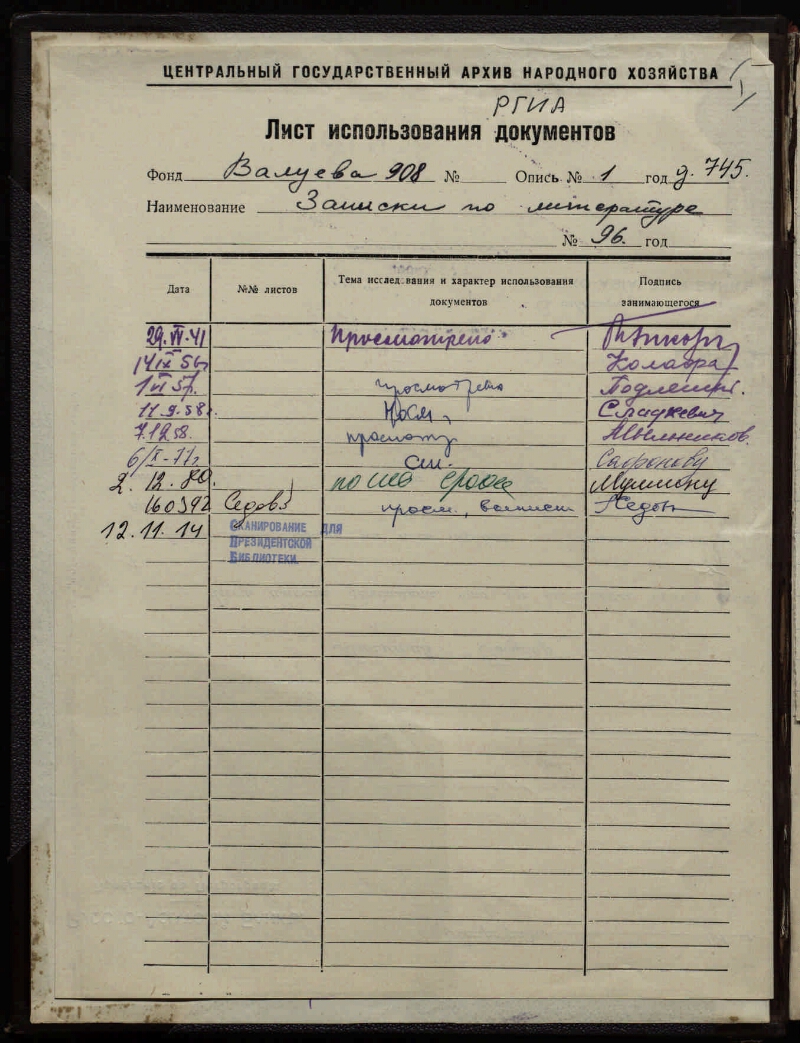 ЦЕНТРАЛЬНЫЙ ГОСУДАРСТВЕННЫЙ АРХИВ НАРОДНОГО ХОЗЯЙСТВА
РГИА
Лист использования документов
Фонд Валуева 908 № Опись № 1 год д. 745.
Наименование Записки по литературе
№ 96. год
Дата №№ листов Тема исследования и характер использования документов Подпись занимающегося
29.VI.41 Просмотрено
14 IX 56
1 VI 57. просмотрено
11.9.58. Сладкевич
7.12.58. просмотр Мыльников
6/X-77г См. Сафонову
2.12.80.
160392 Седов просм., выписки Седов
12.11.14 Сканирование для
Президентской
Библиотеки